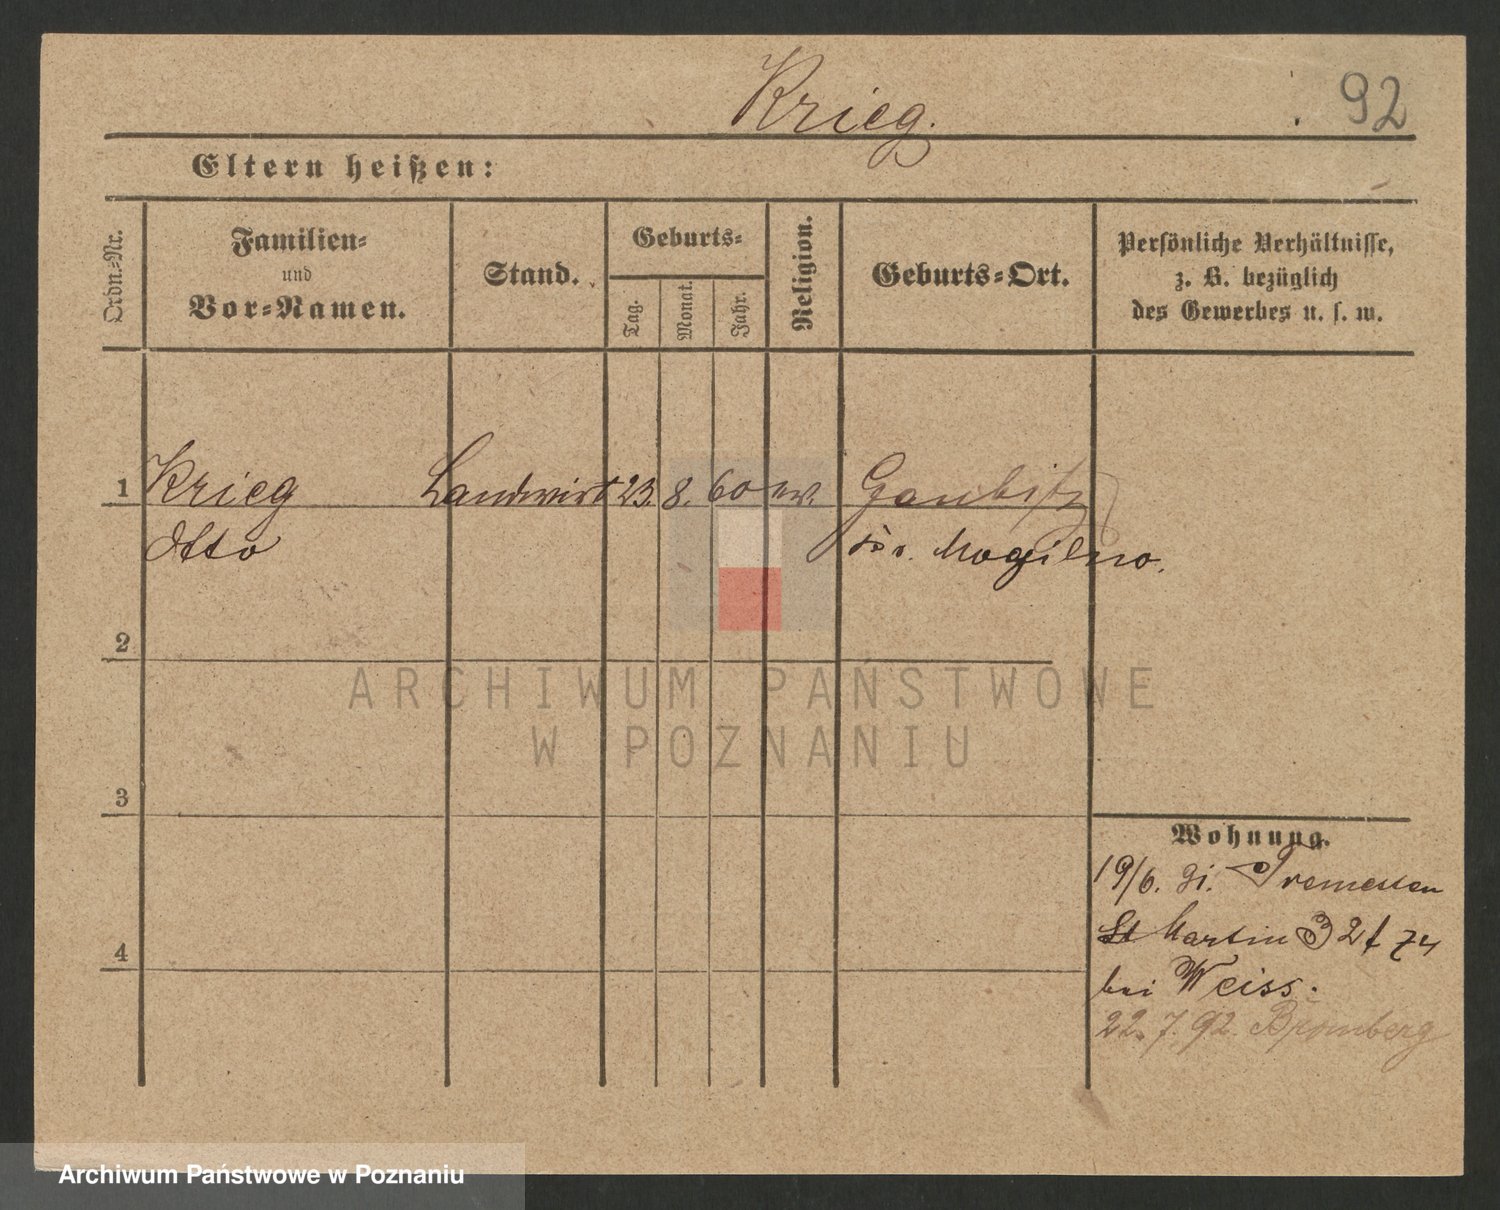 Krieg.
92
Eltern heißen:
Ordn.-Nr.
Familien-
und
Vor-Namen.
Stand.
Geburts-
Tag.
Monat.
Jahr.
Religion.
Geburts-Ort.
Persönliche Verhältnisse,
z. B. bezüglich
des Gewerbes u. s. w.
1 Krieg Landwirt 23. 8. 60 ev.
Otto Mogilno.
2
ARCHIWUM PAŃSTWOWE
W POZNANIU
3
Wohnung.
19/6. Tremessen
St Martin
4
bei Weiss.
22. 7. 92. Bromberg
Archiwum Państwowe w Poznaniu